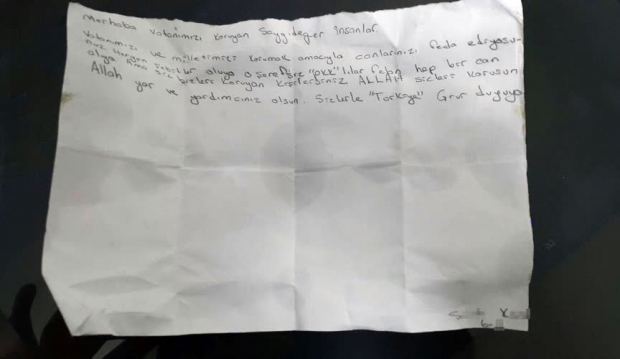 Merhaba Vatanımızı Koruyan Saygıdeğer İnsanlar.
Vatanımızı ve milletimizi korumak amacıyla canlarınızı feda ediyorsu-
nuz. şehitler oluyo o şerefsiz "pkk" lılar hep bir can
alıyo ama siz bizleri koruyan ALLAH sizleri korusun
Allah yar ve yardımcınız olsun. Sizlerle "Türkiye" Grur duyuyo